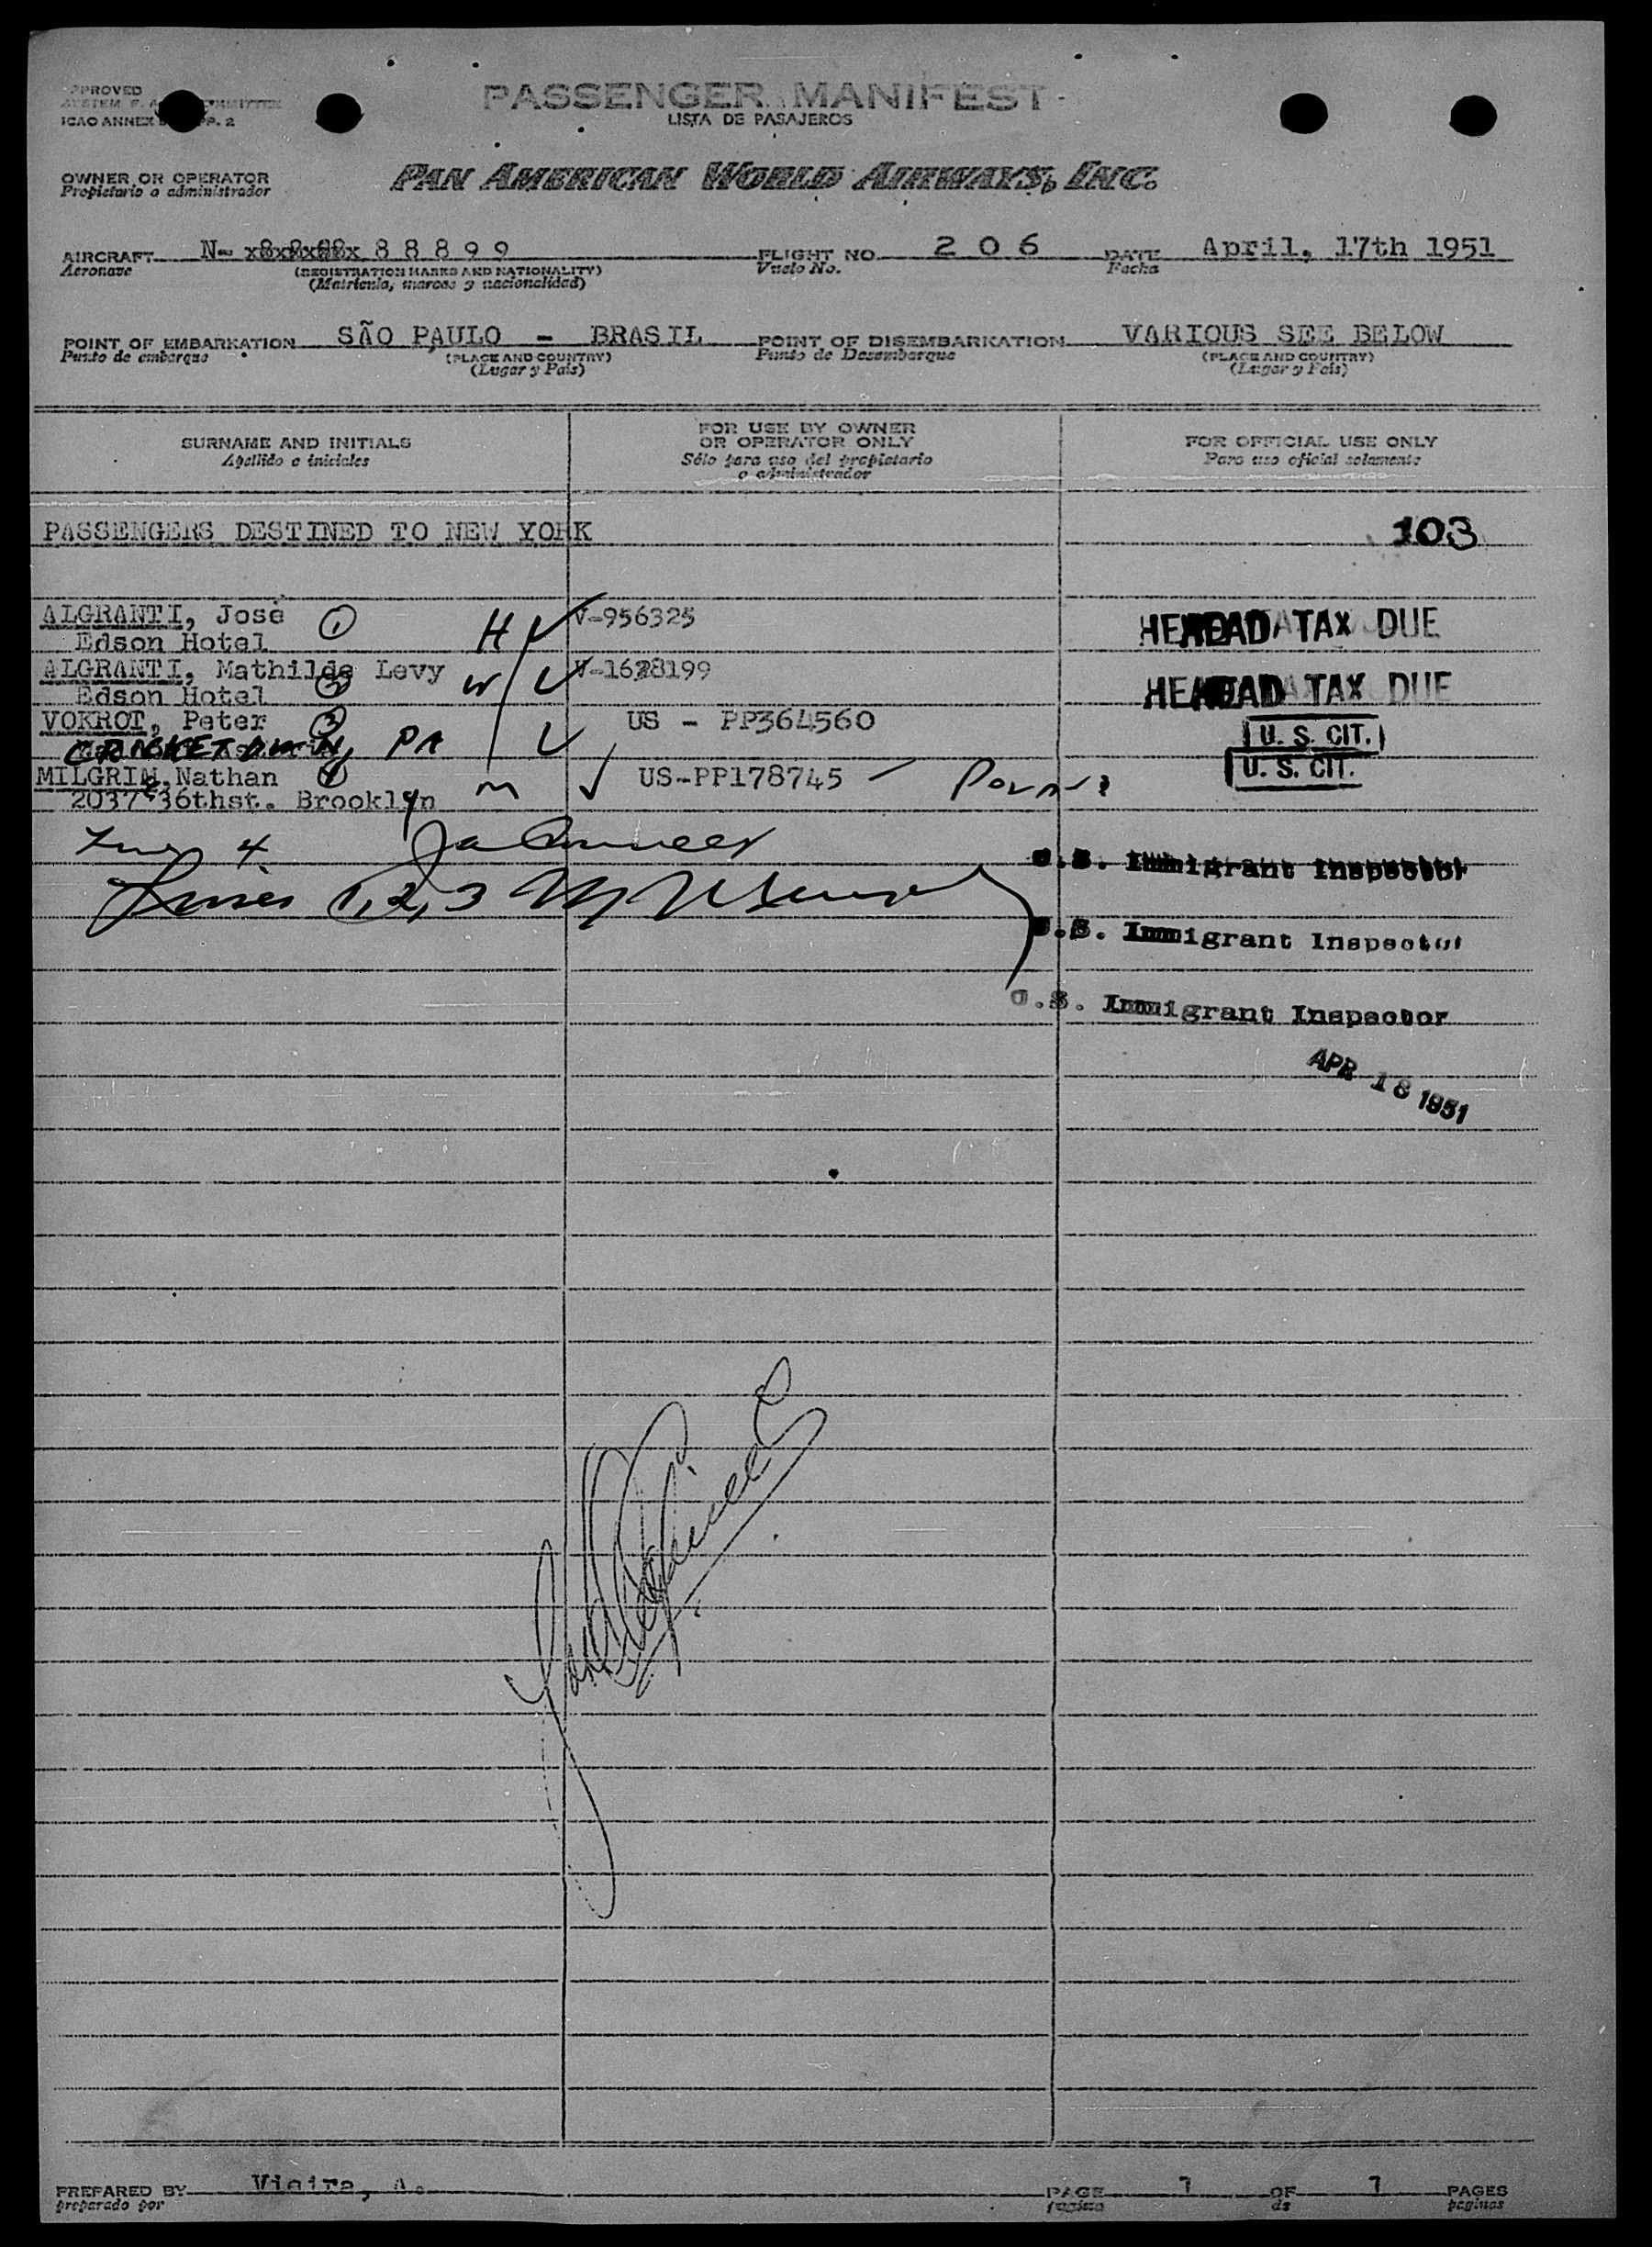 PASSENGER MANIFEST
LISTA DE PASAJEROS
ICAO ANNEX
OWNER OR OPERATOR
Propietario o administrador
PAN AMERICAN WORLD AIRWAYS, INC.
AIRCRAFT N- 88899 FLIGHT NO. 206 DATE April, 17th 1951
Aeronave (REGISTRATION MARKS AND NATIONALITY) Vuelo No. Fecha
(Matrícula, marcas y nacionalidad)
POINT OF EMBARKATION SÃO PAULO - BRASIL POINT OF DISEMBARKATION VARIOUS SEE BELOW
Punto de embarque (PLACE AND COUNTRY) Punto de Desembarque (PLACE AND COUNTRY)
(Lugar y País) (Lugar y País)
SURNAME AND INITIALS FOR USE BY OWNER OR OPERATOR ONLY FOR OFFICIAL USE ONLY
Apellido e iniciales Sólo para uso del propietario o administrador Para uso oficial solamente
PASSENGERS DESTINED TO NEW YORK 103
ALGRANTI, José 1 H V-956325 HEAD TAX DUE
Edson Hotel
ALGRANTI, Mathilde Levy 2 W V-1628199 HEAD TAX DUE
Edson Hotel
VOKROT, Peter 3 US - PP364560 U. S. CIT.
PA
MILGRIM, Nathan 4 M US-PP178745 U. S. CIT.
2037 36thst. Brooklyn
4
1, 2, 3
U.S. Immigrant Inspector
U.S. Immigrant Inspector
U.S. Immigrant Inspector
APR 18 1951
PREPARED BY Vieira, A. PAGE 1 OF 1 PAGES
preparado por página de páginas